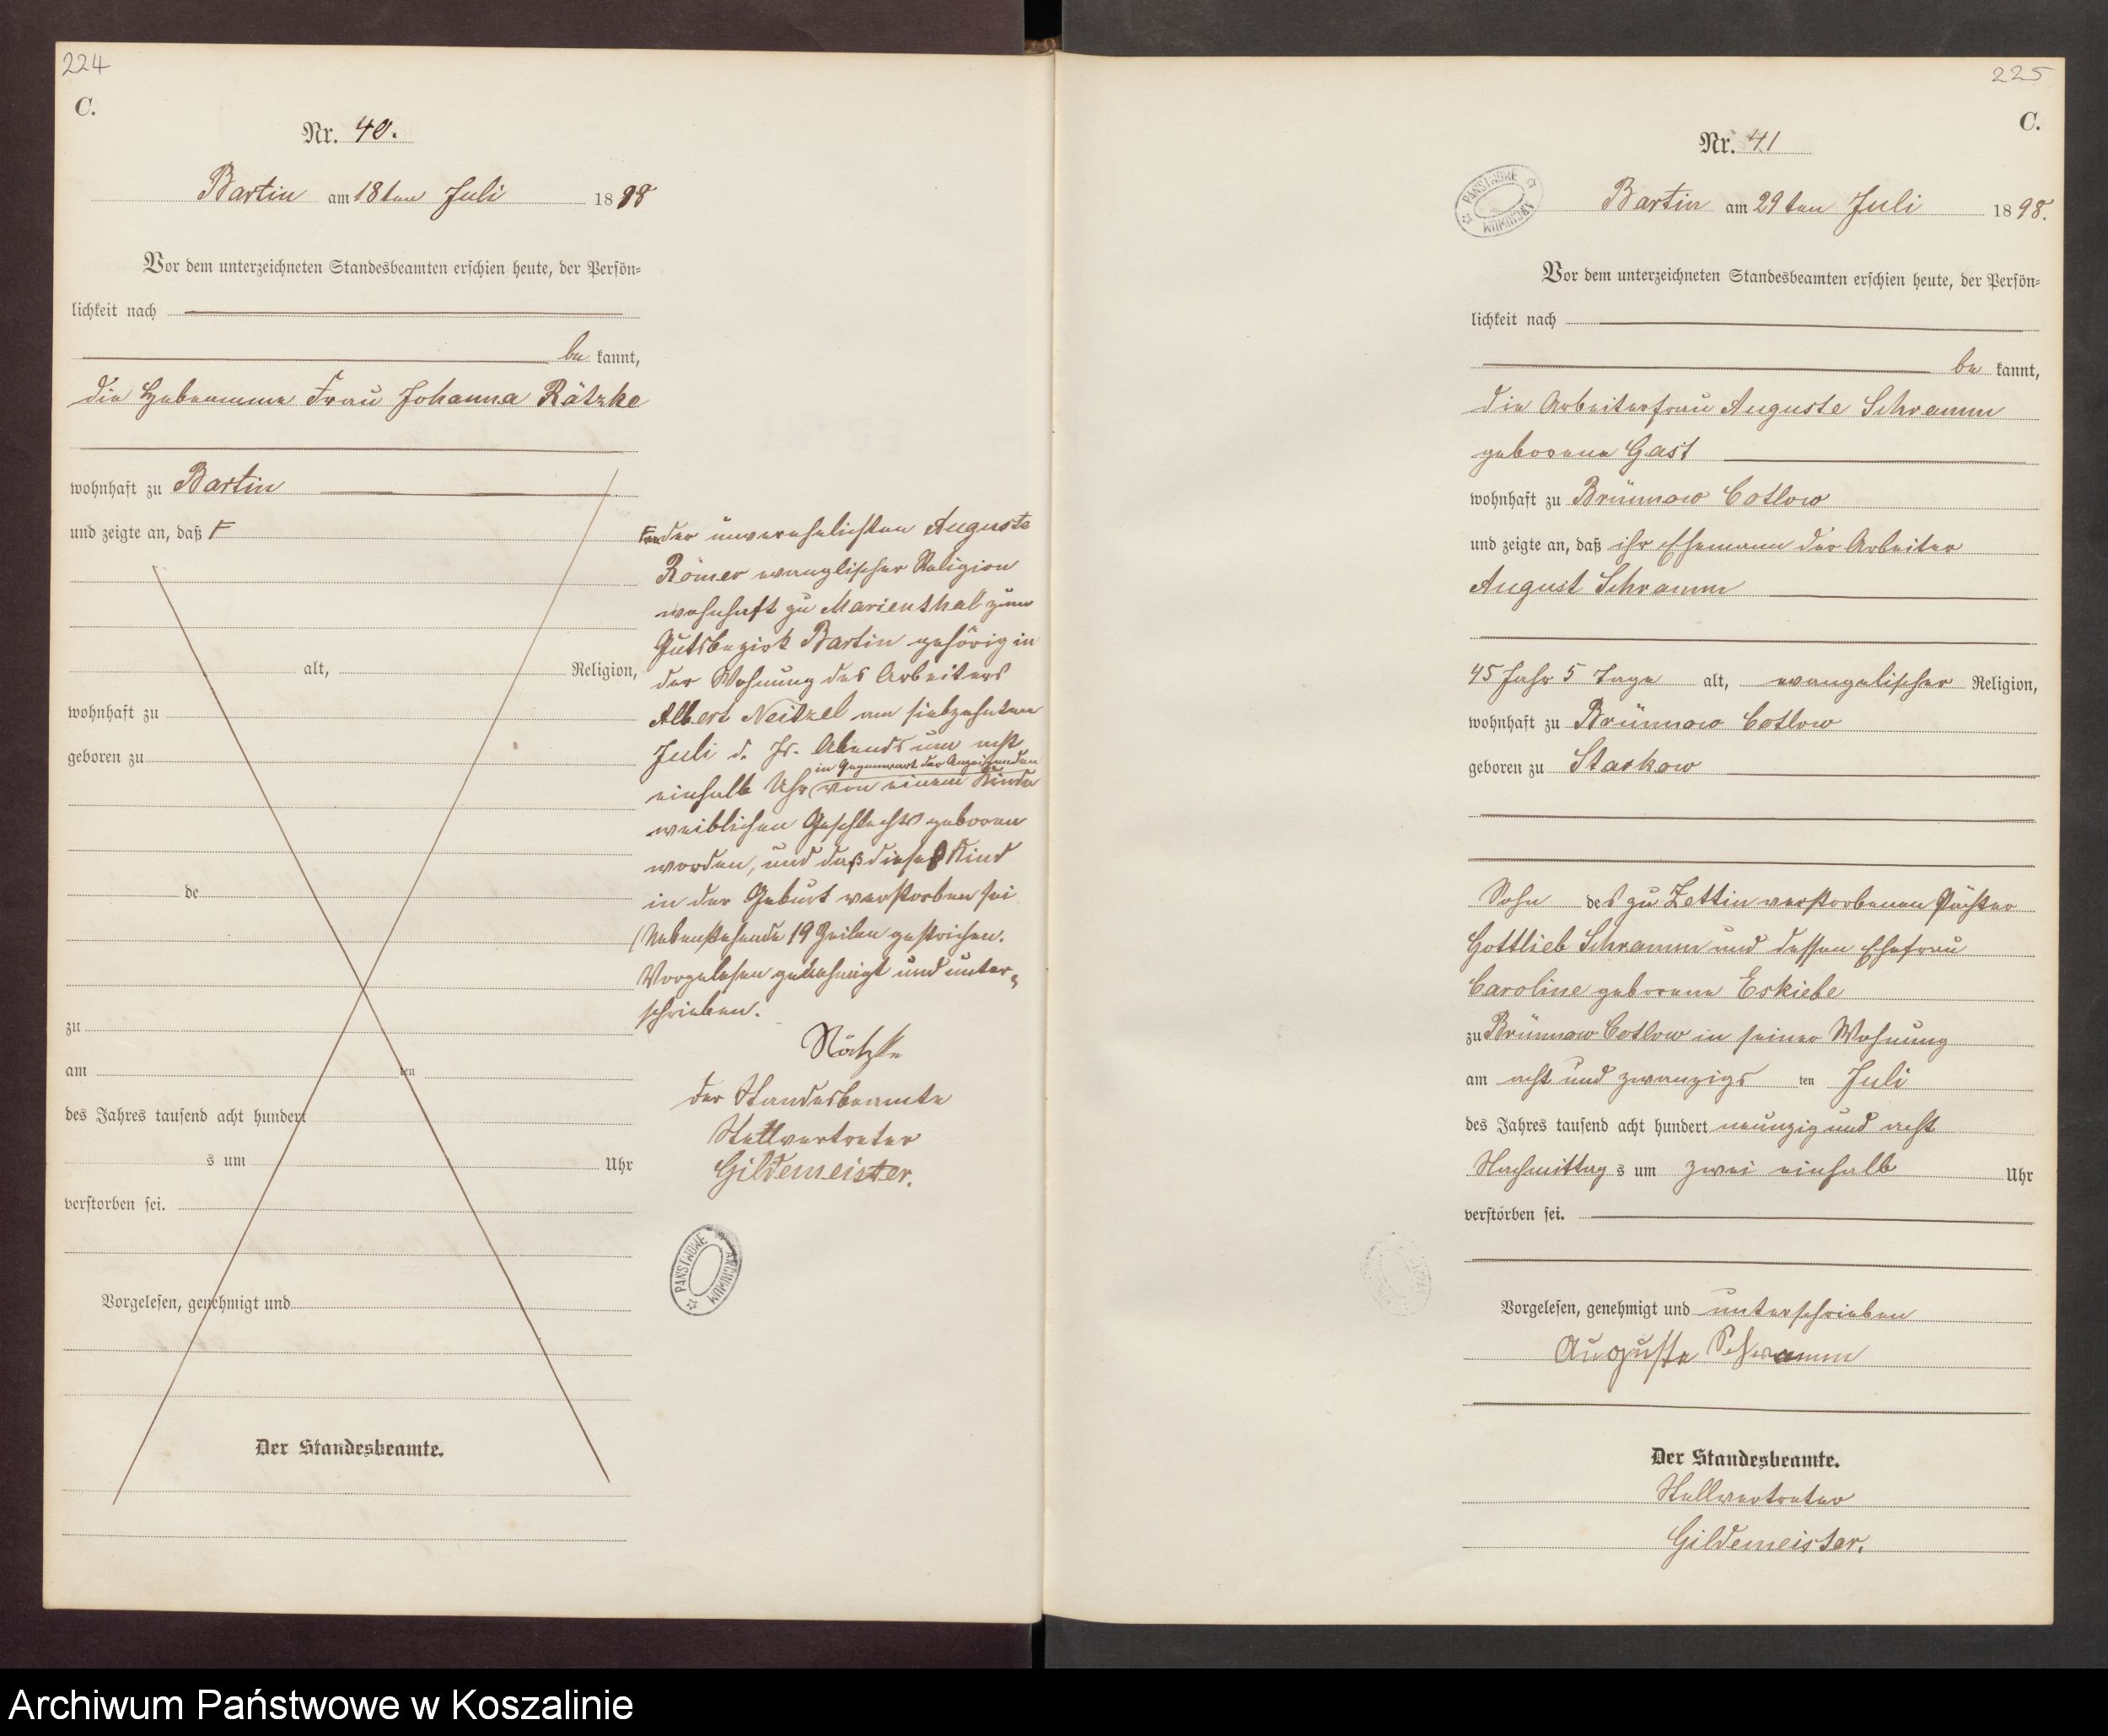 224
C.
Nr. 40.
Bartin am 18ten Juli 1898
Vor dem unterzeichneten Standesbeamten erschien heute, der Persön-
lichkeit nach
be kannt,
die Hebamme Frau Johanna Rätzke
wohnhaft zu Bartin
und zeigte an, daß F
alt, Religion,
wohnhaft zu
geboren zu
de
zu
am ten
des Jahres tausend acht hundert
s um Uhr
verstorben sei.
Vorgelesen, genehmigt und
Der Standesbeamte.
F von der unverehelichten Auguste
Römer evanglischer Religion
wohnhaft zu Marienthal zum
Gutsbezirk Bartin gehörig in
der Wohnung des Arbeiters
Albert Neitzel am siebzehnten
Juli d. Js. Abends um acht
in Gegenwart der Anzeigenden
einhalb Uhr von einem Kinde
weiblichen Geschlechts geboren
worden, und daß dieses Kind
in der Geburt verstorben sei
(Nebenstehende 19 Zeilen gestrichen.
Vorgelesen genehmigt und unter-
schrieben.
Rätzke
der Standesbeamte
Stellvertreter
Gildemeister.
PAŃSTWOWE ARCHIWUM
225
C.
Nr. 41
PAŃSTWOWE ARCHIWUM
Bartin am 29ten Juli 1898.
Vor dem unterzeichneten Standesbeamten erschien heute, der Persön-
lichkeit nach
be kannt,
die Arbeiterfrau Auguste Schramm
geborene Gast
wohnhaft zu Brünnow Cotlow
und zeigte an, daß ihr Ehemann der Arbeiter
August Schramm
45 Jahr 5 Tage alt, evangelischer Religion,
wohnhaft zu Brünnow Cotlow
geboren zu Starkow
Sohn des zu Zettin verstorbenen Pächter
Gottlieb Schramm und dessen Ehefrau
Caroline geborene Eskiebe
zu Brünnow Cotlow in seiner Wohnung
am acht und zwanzigs ten Juli
des Jahres tausend acht hundert neunzig und acht
Nachmittag s um zwei einhalb Uhr
verstorben sei.
Vorgelesen, genehmigt und unterschrieben
Auguste Schramm
Der Standesbeamte.
Stellvertreter
Gildemeister.
Archiwum Państwowe w Koszalinie